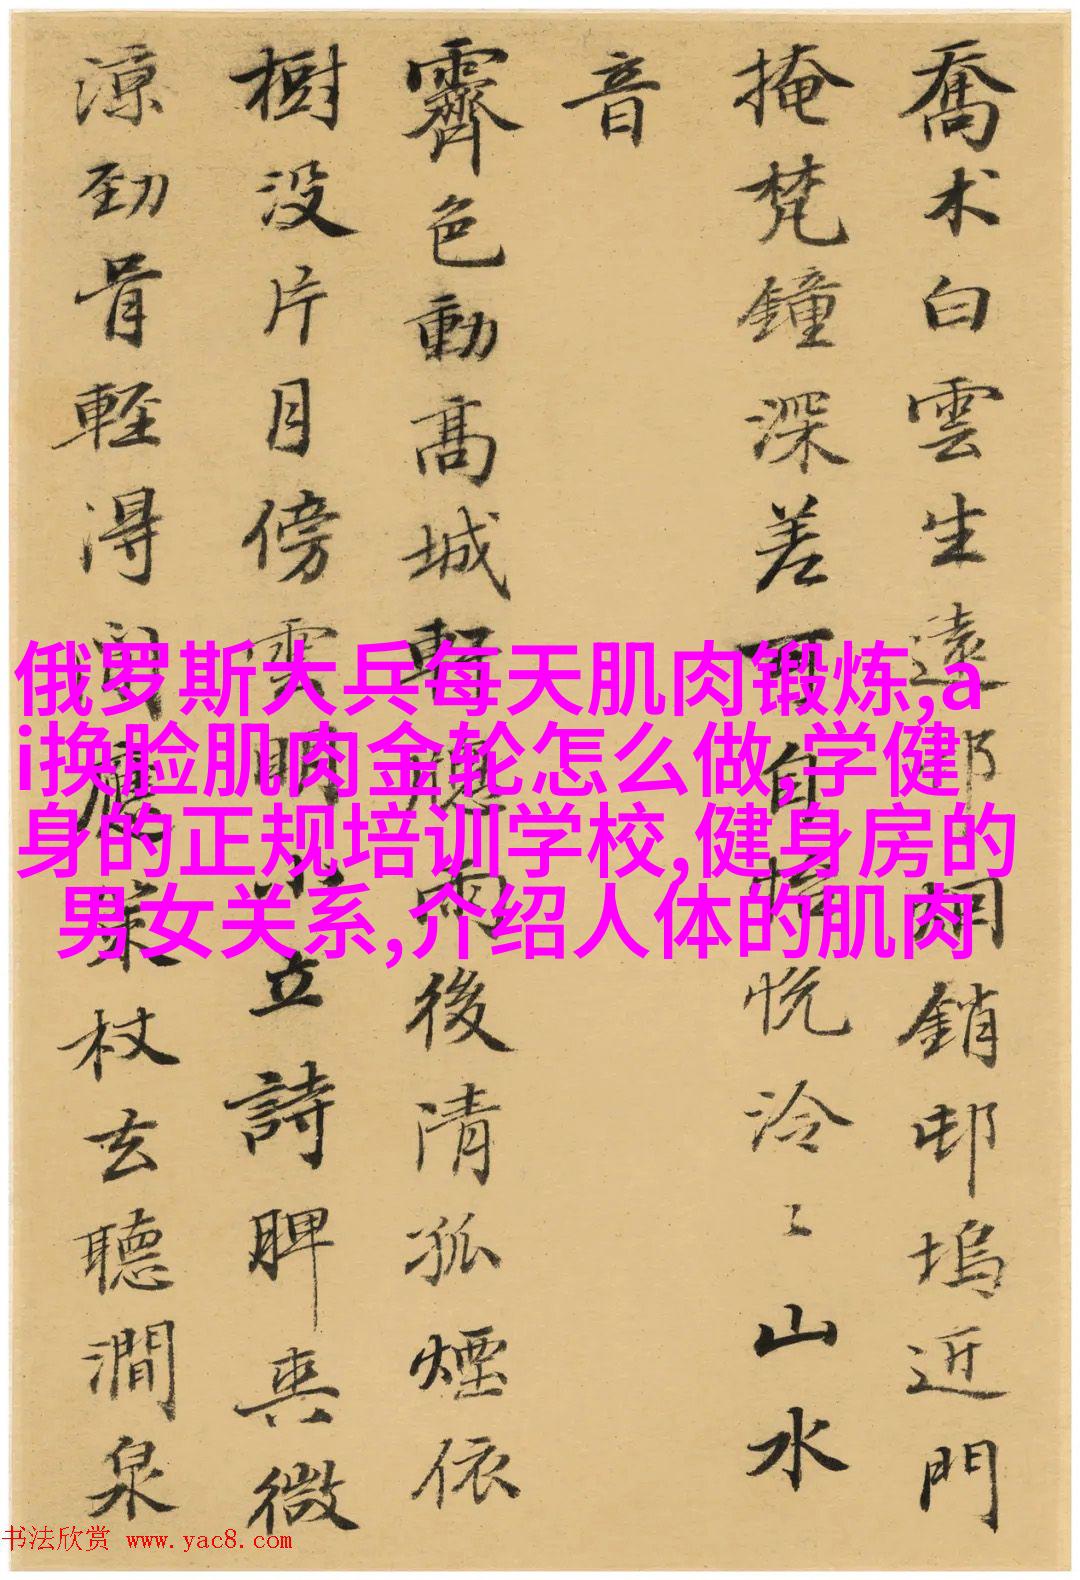 喬木白雲生遠邨烟銷邨塢近門
掩梵鐘深差可自怡悦泠〻山水
音
霽色動高城雨後清孤煙依
樹没片月傍雲明立詩脾爽微
凉勁骨輕得策杖去聽澗泉
俄罗斯大兵每天肌肉锻炼,a
i换脸肌肉金轮怎么做,学健
身的正规培训学校,健身房的
男女关系,介绍人体的肌肉
书法欣赏 www.yac8.com